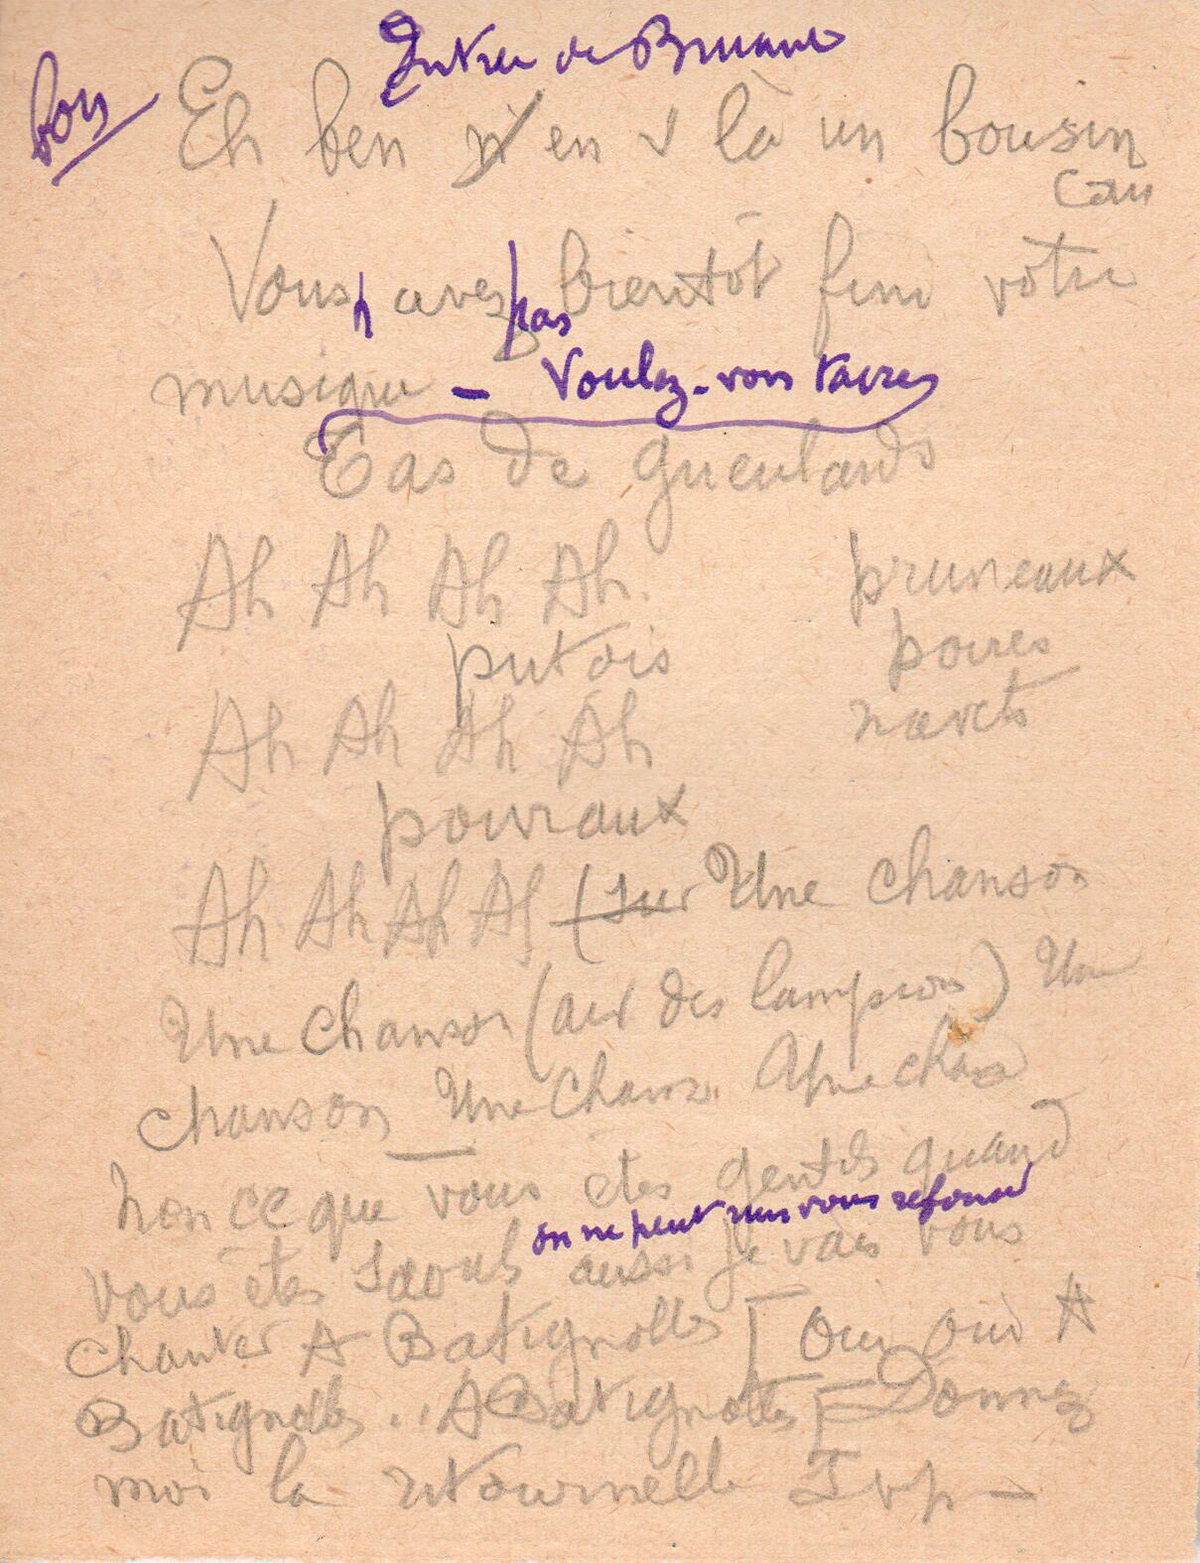 Entrée de Bruant
bon
Eh ben n'en v là un bousin
Vous n avez pas bientôt fini votre
musique - Voulez-vous taire
Tas de gueulards
Ah Ah Ah Ah. pruneaux
putois poires
Ah Ah Ah Ah navets
poivraux
Ah Ah Ah Ah (sur Une chanson
Une chanson (air des lampions) Une
chanson Une chans.
non ce que vous êtes gentils quand
on ne peut rien vous refuser
vous êtes saouls aussi je vais vous
chanter A Batignolles [ oui oui A
Batignolles .. A Batignolles ] Donnez
moi la ritournelle Svp -